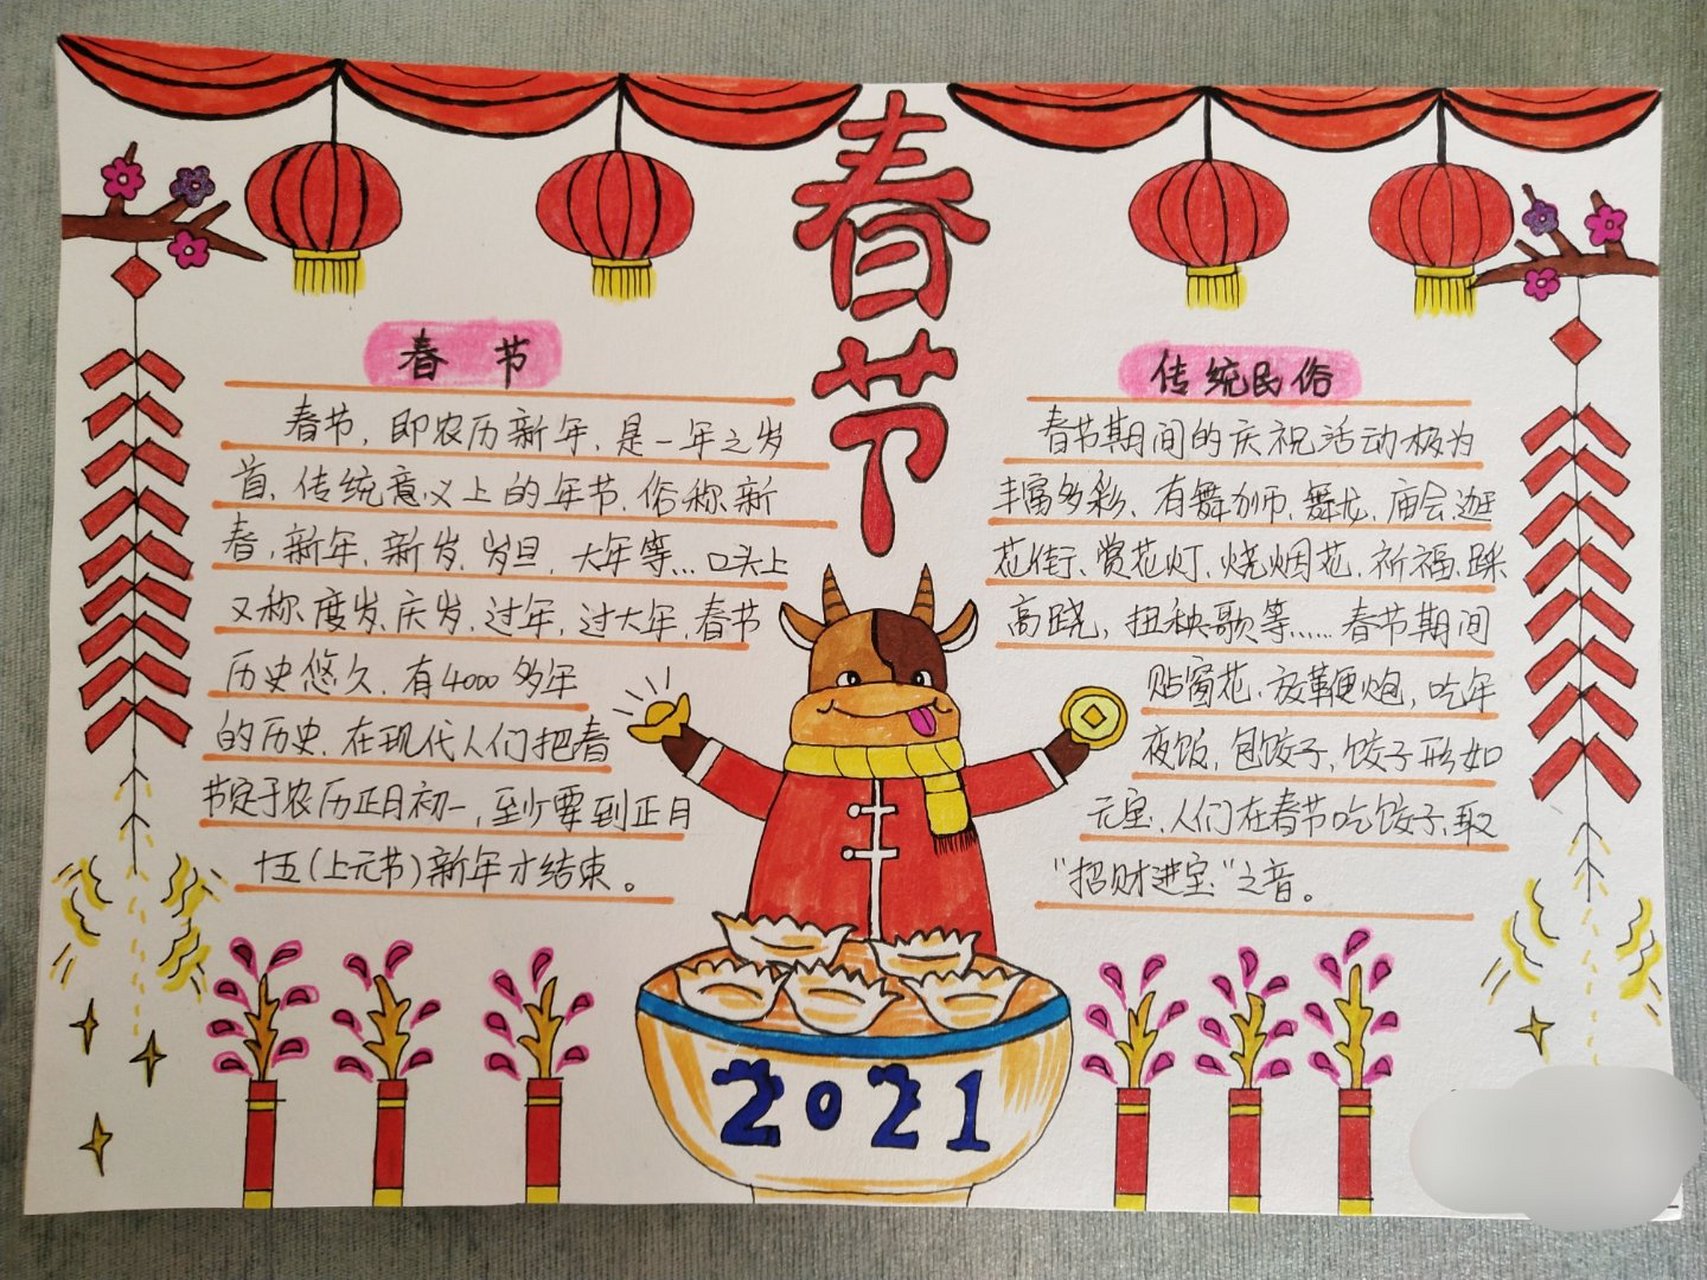 春节
春 节
春节，即农历新年，是一年之岁
首、传统意义上的年节、俗称新
春，新年、新岁、岁旦，大年等...口头上
又称度岁、庆岁、过年，过大年、春节
历史悠久，有4000多年
的历史、在现代人们把春
节定于农历正月初一，至少要到正月
十五（上元节）新年才结束。
传统民俗
春节期间的庆祝活动极为
丰富多彩、有舞狮、舞龙、庙会、逛
花街、赏花灯、烧烟花、祈福、踩
高跷，扭秧歌等……春节期间
贴窗花、放鞭炮，吃年
夜饭，包饺子，饺子形如
元宝，人们在春节吃饺子，取
“招财进宝”之音。
2021